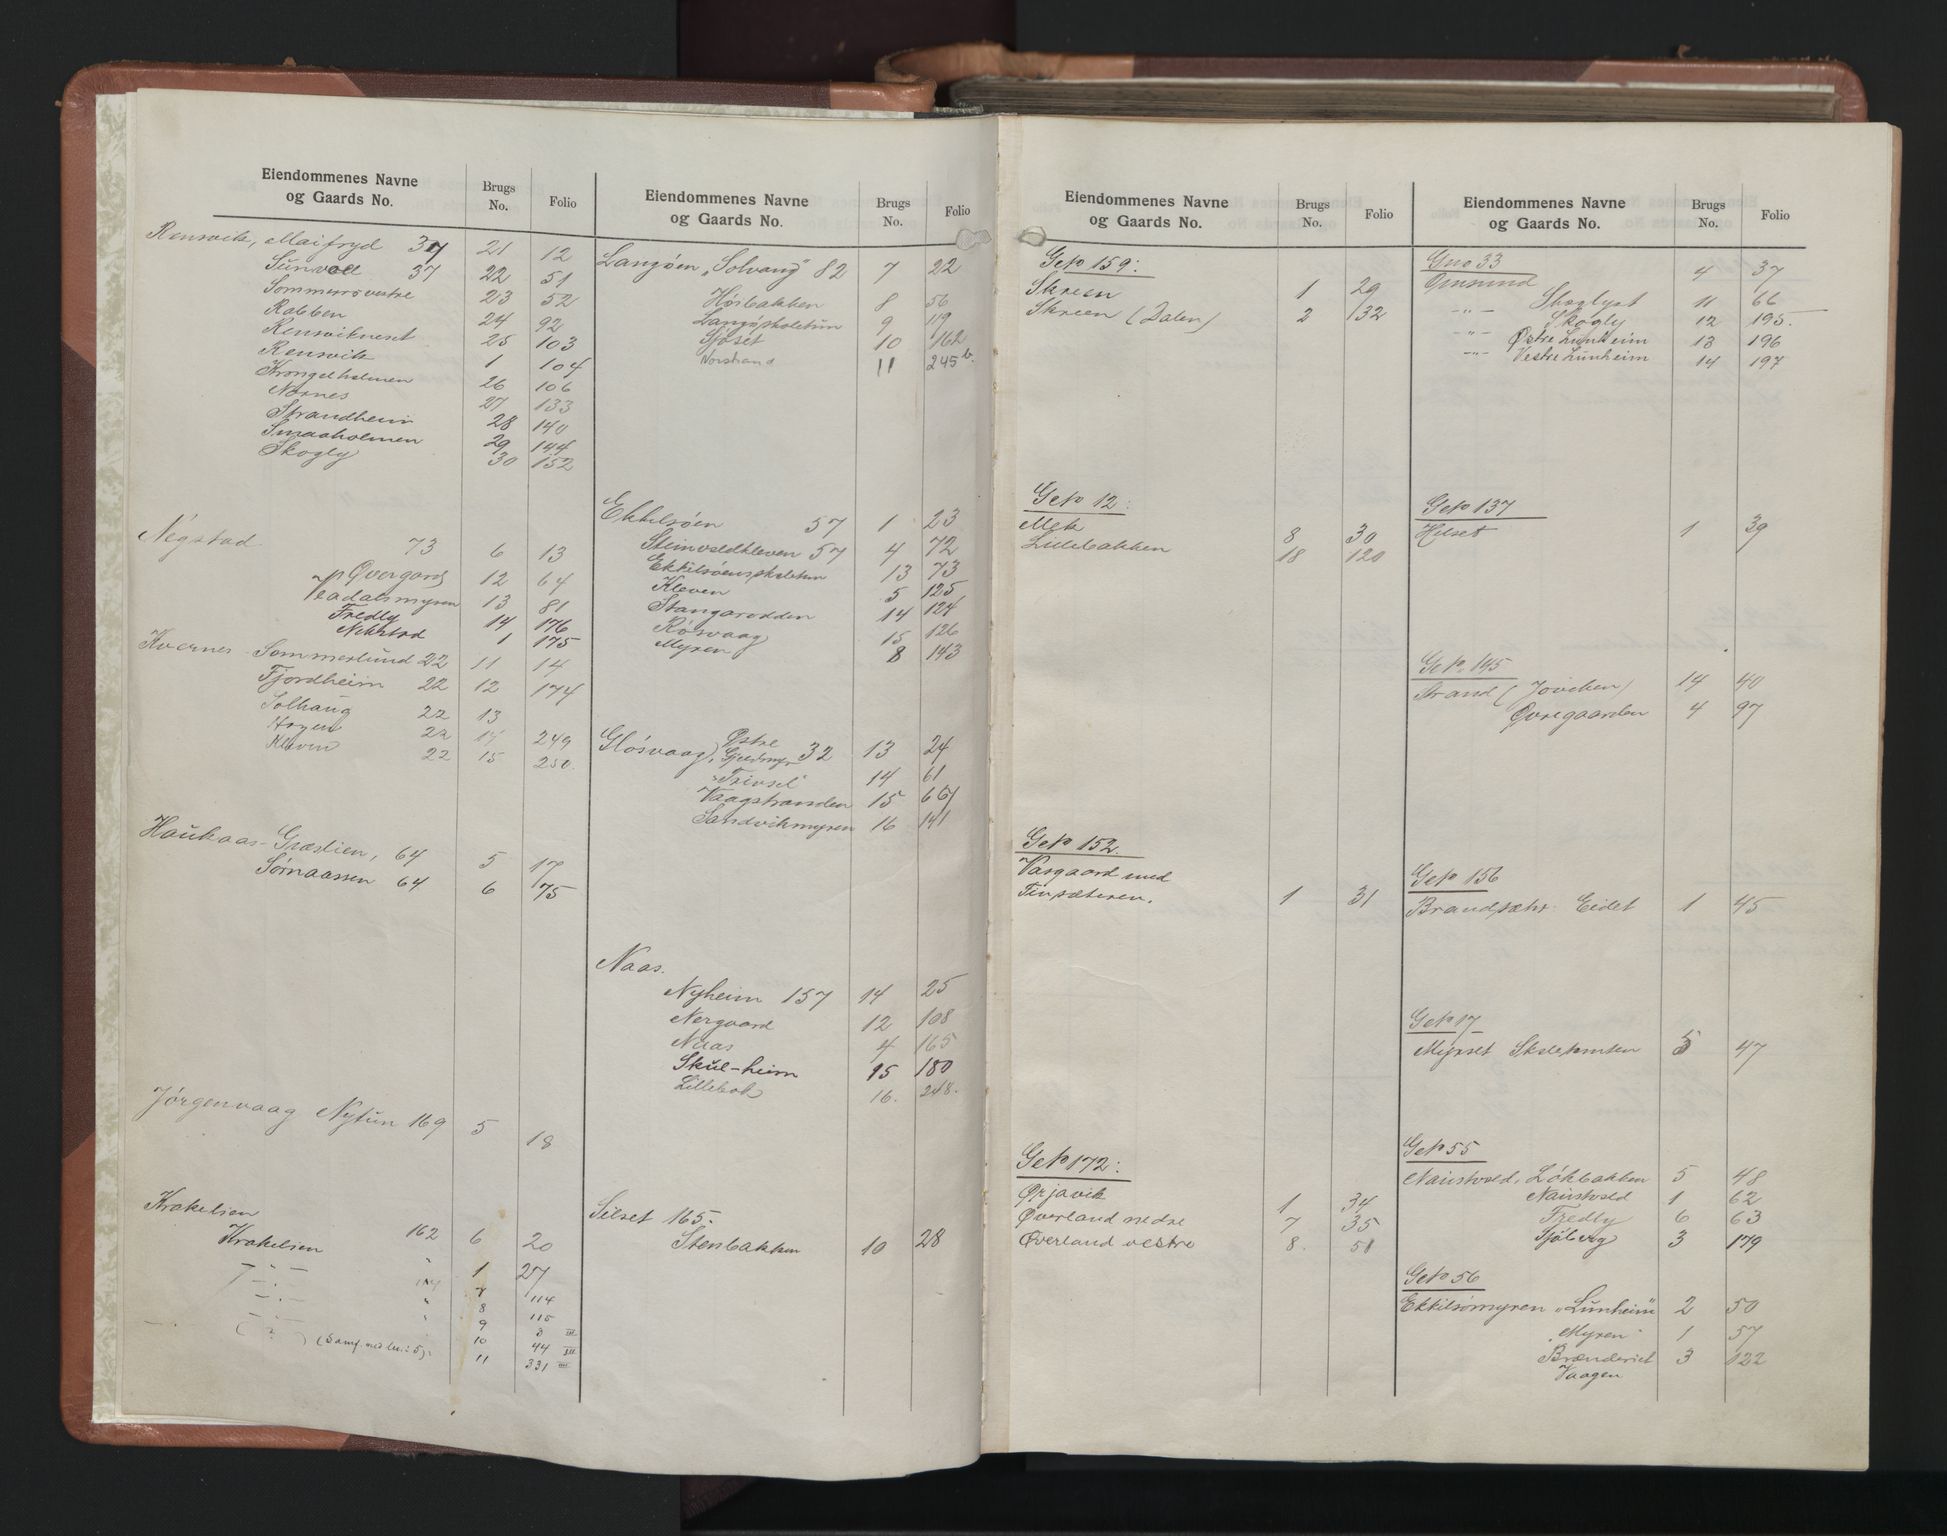 Eiendommenes Navne og Gaards No. Brugs No. Folio
Rensvik, Maifryd 37 21 12
Sunvoll 37 22 51
Sommerrovestre 23 52
Rabben 24 92
Rensviknest 25 103
Rensvik 1 104
Krongelholmen 26 106
Nornes 27 133
Strandheim 28 140
Smaaholmen 29 144
Skogly 30 152
Negstad 73 6 13
Øvergard 12 64
Veadalsmyren 13 81
Fredly 14 176
Nekstad 1 175
Kvernes Sommerlund 22 11 14
Fjordheim 22 12 174
Solhaug 22 13
Hagen 22 14 249
Kleven 22 15 250.
Haukaas - Græslien, 64 5 17
Sørnaassen 64 6 75
Jørgenvaag Nytun 169 5 18
Krakelien
Krakelien 162 6 20
" 1 27
" 7 114
" 8 115
9 3 III
(Samf. med bn: 5): 10 44 III
11 331 III
Eiendommenes Navne og Gaards No. Brugs No. Folio
Langøen "Solvang" 82 7 22
Høibakken 8 56
Langøskoletun 9 119
Sjøset 10 162
Norstrand 11 245 b.
Ekkilsøen 57 1 23
Steinvoldkleven 57 4 72
Ekkilsøenskoletun 13 73
Kleven 5 125
Stangarodden 14 124
Røsvaag 15 126
Myren 8 143
Gløsvaag, Østre 32 13 24
"Trivsel" 14 61
Vaagstranden 15 67
Sandvikmyren 16 141
Naas.
Nyheim 157 14 25
Nergaard 12 108
Naas 4 165
Skul-heim 15 180
Lillebok 16. 248.
Silset 165.
Stenbakken 10 28
Eiendommenes Navne og Gaards No. Brugs No. Folio
GNo 159:
Skreen 1 29
Skreen (Dalen) 2 132
GNo 12:
Mek 8 30
Lillebakken 18 120
GNo 152.
Vasgaard med
Finsæteren. 1 31
GNo 172:
Ørjavik 1 34
Øverland nedre 7 35
Øverland vestre 8. 51
Eiendommenes Navne og Gaards No. Brugs No. Folio
Gno 33
Omsund 4 37
Skoglyst 11 66
-"- Skogly 12 195.
-"- Østre Lunheim 13 196
-"- Vestre Lunheim 14 197
GNo 137
Helset 1 39
GNo. 145
Strand (Jøviken) 14 40
Øvregaarden 4 97
GNo 156
Brandsæter Eidet 1 45
GNo 17
Myrset Skoletomten 5 47
GNo 55
Naustvold, Løkbakken 5 48
Naustvold 1 62
Fredly 6 63
Sjøberg 3 179
GNo 56
Ekkilsømyren "Lunheim" 2 50
"Myren" 1 57
Brænderiet 3 122
Vaagen